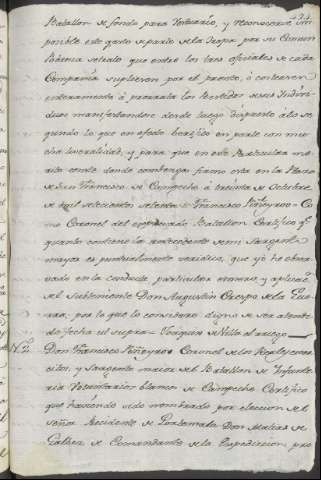 Batallon de fondo para Vestuario, y reconociendo im
posible este gasto de parte de la Tropa por su
sueldo que entre los tres oficiales de cada
Compañia supliesen por el pronto, à contener
enteramente à prorrata los Vestidos de sus Indivi
duos manifestandose desde luego dispuesto à lo se
gundo lo que en efecto verificó en parte con mu
cha liveralidad, y para que en este Particular su me
rito conste donde combenga firmo esta en la Plaza
de San Francisco de Campeche à treinta de Octubre
de mil setecientos setenta Francisco Piñeyro = Co
mo Coronel del expresado Batallon Certifico qe
quanto contiene la antecedente de mi Sargento
mayor es puntualmente veridico, que yò he obser
vado en la conducta, particular esmero, y aplicacn
del Subteniente Don Augustin Crespo de la Gue
rra, por lo que lo considero digno de ser atendido
de fecha ut supra = Joaquin
N.2. Don Francisco Piñeyro Coronel de los Reales exer
citos, y Sargento maior del Batallon de Infante
ria Voluntarios blancos de Campeche Certifico
que haviendo sido nombrado por eleccion del
señor Presidente de Goatemala Don Matias de
Galbez de Comandante de la Expedicion, pro